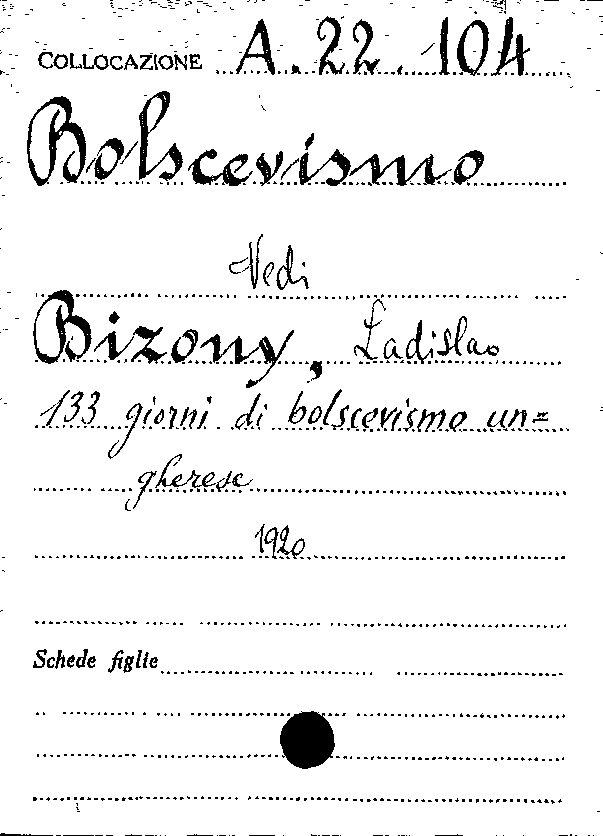 COLLOCAZIONE A. 22. 104
Bolscevismo
Vedi
Bizony, Ladislao
133 giorni di bolscevismo un=
gherese
1920
Schede figlie